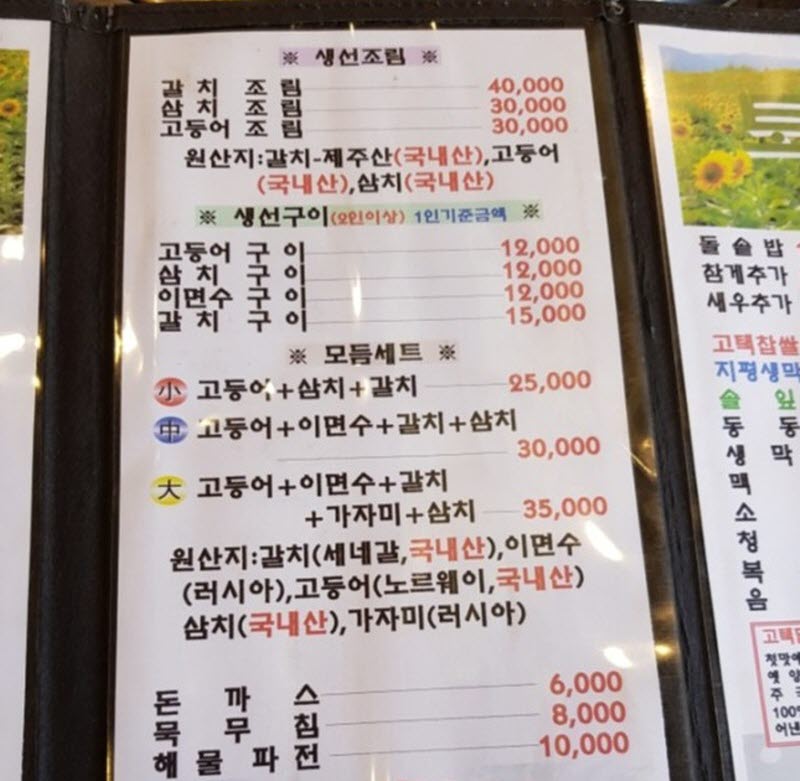 ※ 생선조림 ※
갈 치 조 림 40,000
삼 치 조 림 30,000
고등어 조 림 30,000
원산지:갈치-제주산(국내산),고등어
(국내산),삼치(국내산)
※ 생선구이(2인이상) 1인기준금액 ※
고등어 구 이 12,000
삼 치 구 이 12,000
이면수 구 이 12,000
갈 치 구 이 15,000
※ 모듬세트 ※
小 고등어+삼치+갈치 25,000
中 고등어+이면수+갈치+삼치
30,000
大 고등어+이면수+갈치
+가자미+삼치 35,000
원산지:갈치(세네갈,국내산),이면수
(러시아),고등어(노르웨이,국내산)
삼치(국내산),가자미(러시아)
돈 까 스 6,000
묵 무 침 8,000
해 물 파 전 10,000
돌 솥 밥
참게추가
새우추가
고택찹쌀
지평생막
솔 잎
동 동
생 막
맥
소
청
복
음
고택
첫맛에
옛 양
주
100%
어낸